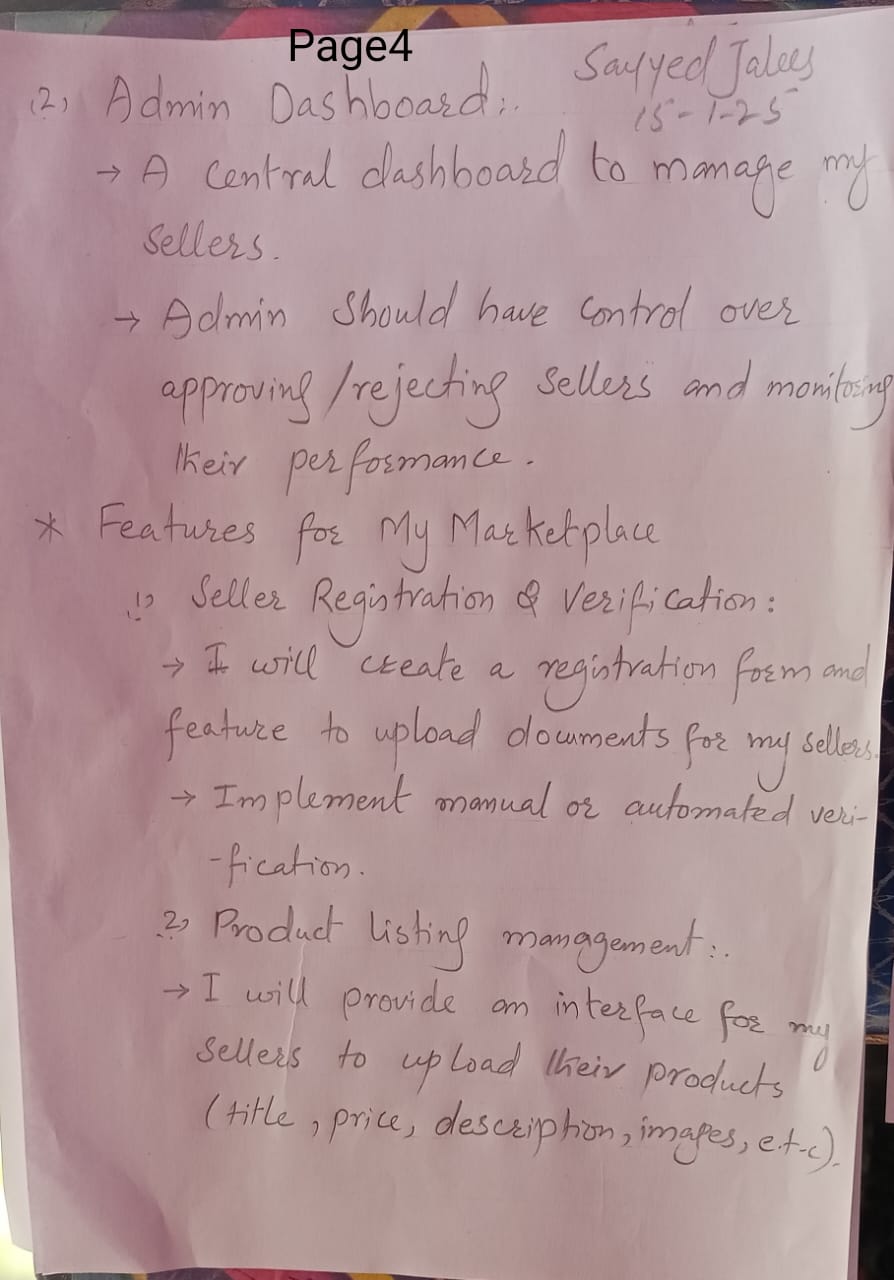 Page4
Sayyed Jalees
15-1-25
(2) Admin Dashboard:.
→ A central dashboard to manage my
sellers.
→ Admin should have control over
approving/rejecting sellers and monitoring
their performance.
* Features for My Marketplace
1) Seller Registration & Verification:
→ I will create a registration form and
feature to upload documents for my sellers.
→ Implement manual or automated veri-
-fication.
2) Product listing management:.
→ I will provide an interface for my
sellers to upload their products
(title, price, description, images, e.t.c).